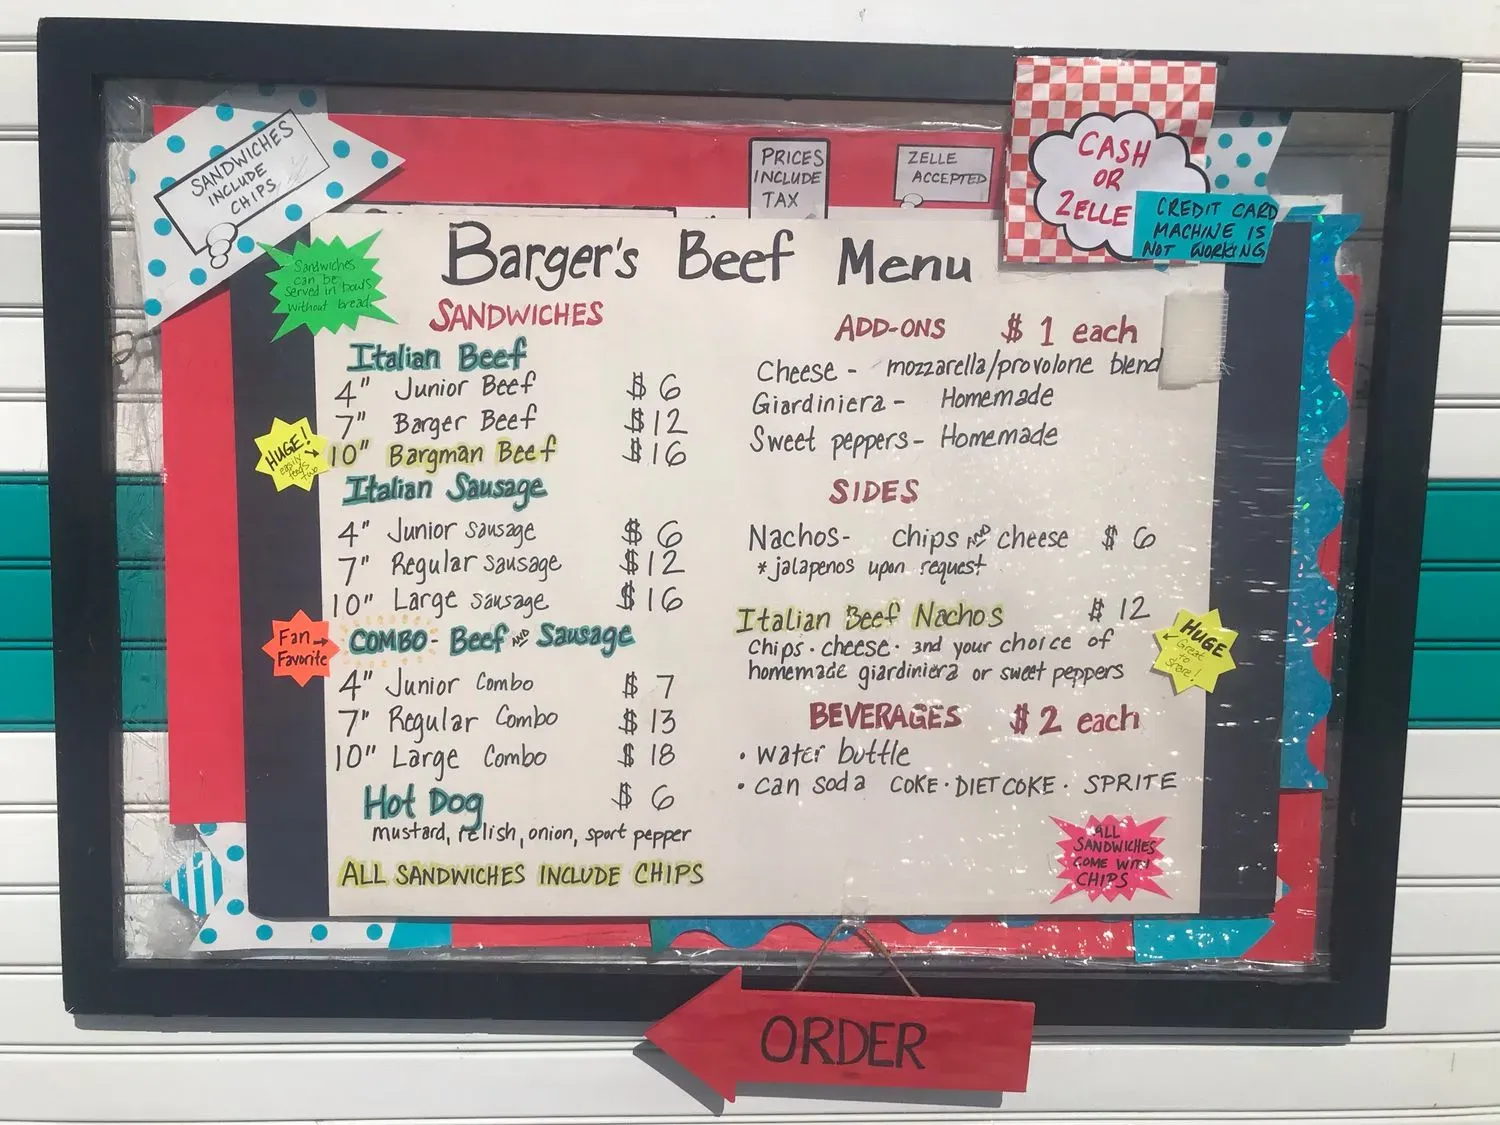 SANDWICHES
INCLUDE
CHIPS
PRICES
INCLUDE
TAX
ZELLE
ACCEPTED
CASH
OR
ZELLE
CREDIT CARD
MACHINE IS
NOT WORKING
Sandwiches
can be
served in bowls
without bread.
Barger's Beef Menu
SANDWICHES
Italian Beef
4" Junior Beef $ 6
7" Barger Beef $ 12
HUGE!
easily
feeds
two
10" Bargman Beef $ 16
Italian Sausage
4" Junior sausage $ 6
7" Regular sausage $ 12
10" Large sausage $ 16
Fan
Favorite
COMBO- Beef AND Sausage
4" Junior Combo $ 7
7" Regular Combo $ 13
10" Large Combo $ 18
Hot Dog $ 6
mustard, relish, onion, sport pepper
ALL SANDWICHES INCLUDE CHIPS
ADD-ONS $ 1 each
Cheese - mozzarella/provolone blend
Giardiniera - Homemade
Sweet peppers - Homemade
SIDES
Nachos- chips AND cheese $ 6
* jalapenos upon request
Italian Beef Nachos $ 12
chips · cheese · and your choice of
homemade giardiniera or sweet peppers
HUGE
Great
to
share!
BEVERAGES $ 2 each
• water bottle
• can soda COKE · DIET COKE · SPRITE
ALL
SANDWICHES
COME WITH
CHIPS
ORDER